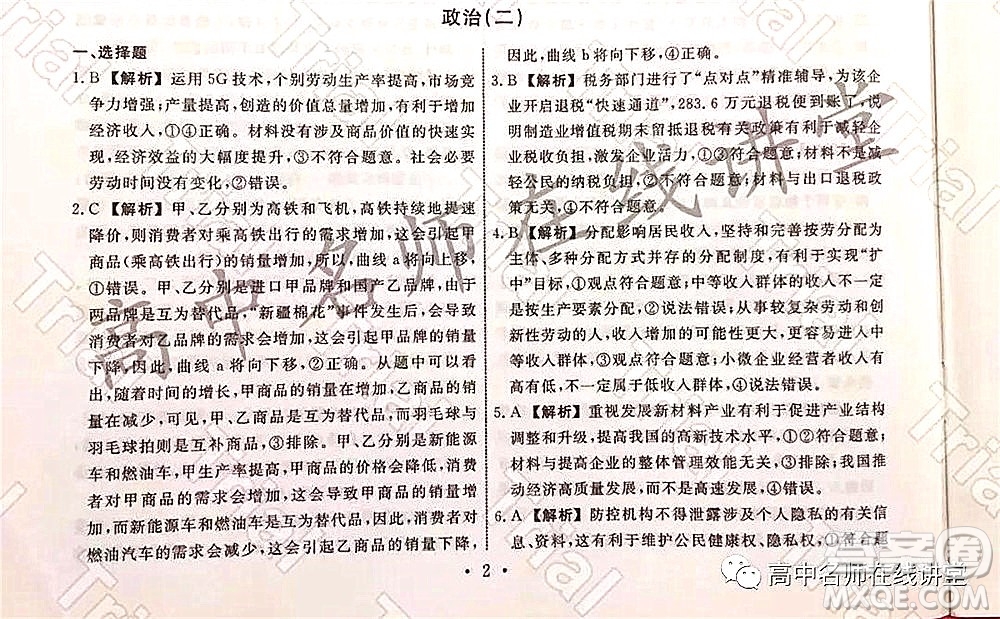 政治(二)
一、选择题
1. B 【解析】运用5G技术,个别劳动生产率提高,市场竞
争力增强;产量提高,创造的价值总量增加,有利于增加
经济收入,①④正确。材料没有涉及商品价值的快速实
现,经济效益的大幅度提升,③不符合题意。社会必要
劳动时间没有变化,②错误。
2. C 【解析】甲、乙分别为高铁和飞机,高铁持续地提速
降价,则消费者对乘高铁出行的需求增加,这会引起甲
商品(乘高铁出行)的销量增加,所以,曲线a将向上移,
①错误。甲、乙分别是进口甲品牌和国产乙品牌,由于
两品牌是互为替代品,“新疆棉花”事件发生后,会导致
消费者对乙品牌的需求会增加,这会引起甲品牌的销量
下降,因此,曲线a将向下移,②正确。从题中可以看
出,随着时间的增长,甲商品的销量在增加,乙商品的销
量在减少,可见,甲、乙商品是互为替代品,而羽毛球与
羽毛球拍则是互补商品,③排除。甲、乙分别是新能源
车和燃油车,甲生产率提高,会导致甲车价格下降,消费
者对甲商品的需求会增加,这会导致甲商品的销量增
加,由于新能源车和燃油车是互为替代品,因此,消费者对
燃油汽车的需求会减少,这会引起乙商品的销量下降,
因此,曲线b将向下移,④正确。
3. B 【解析】税务部门进行了“点对点”精准辅导,为该企
业开启退税“快速通道”,283.6万元退税便到账了,说
明制造业增值税期末留抵退税有关政策有利于减轻企
业税收负担,激发企业活力,①③符合题意;材料不是减
轻公民的纳税负担,②不符合题意;材料与出口退税政
策无关,④不符合题意。
4. B 【解析】分配影响居民收入,坚持和完善按劳分配为
主体、多种分配方式并存的分配制度,有利于实现“扩
中”的目标,①观点符合题意;技术工人的工资收入不
是按生产要素分配,②说法错误;从事较复杂劳动和创
新性劳动的人,收入增加的可能性更大,更易进入中
等收入群体,③观点符合题意;小微企业经营者收入高
低不同,不一定属于低收入群体,④说法错误。
5. A 【解析】重视发展新材料产业有利于促进产业结构
调整和升级,提高我国的高新技术水平,①②符合题意。
材料与提高企业的整体管理效能无关,③排除;我国推
动经济高质量发展,而不是高速发展,④错误。
6. A 【解析】防控机构不得泄露涉及个人隐私的有关信
息、资料,这有利于维护公民健康权、隐私权,①符合题
· 2 ·
高中名师在线讲堂
高中名师在线讲堂
答案圈
MXQE.COM
Trial